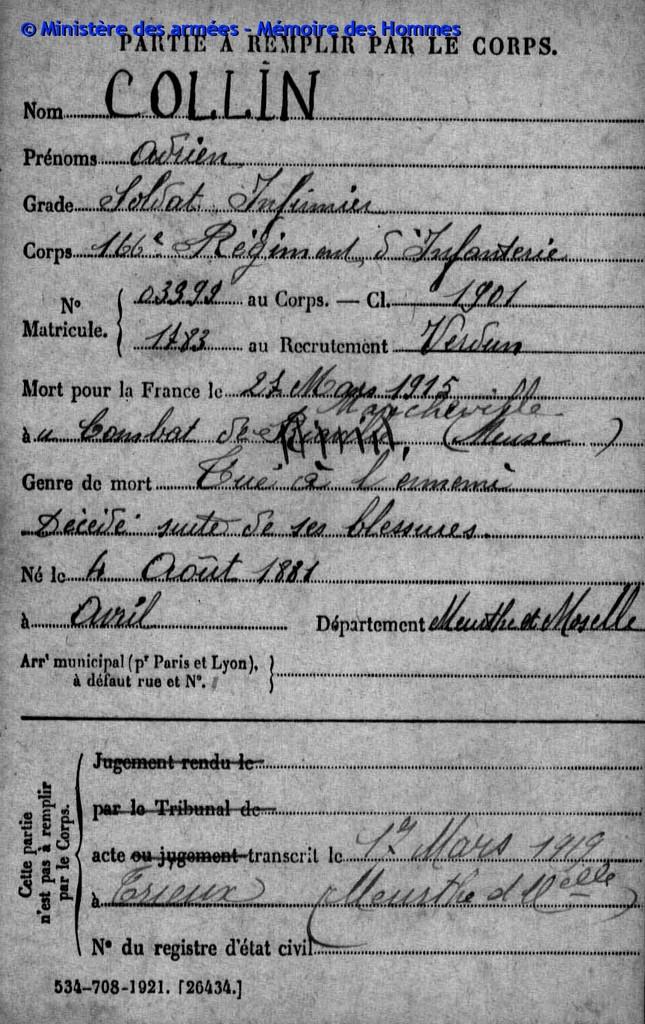 © Ministère des armées - Mémoire des Hommes
PARTIE A REMPLIR PAR LE CORPS.
Nom COLLIN
Prénoms Adrien
Grade Soldat Infirmier
Corps 166e Régiment d'Infanterie
N° Matricule. { 03999 au Corps. — Cl. 1901
1783 au Recrutement Verdun
Mort pour la France le 27 Mars 1915
Marcheville
à u Combat de (Meuse)
Genre de mort Tué à l'ennemi
Décédé suite de ses blessures.
Né le 4 Août 1881
à Avril Département Meurthe et Moselle
Arr' municipal (pr Paris et Lyon),
à défaut rue et N°.
Cette partie n'est pas à remplir par le Corps.
Jugement rendu le
par le Tribunal de
acte ou jugement transcrit le Mars 1919
à Trieux (Meurthe et Melle)
N° du registre d'état civil
534-708-1921. [26434.]